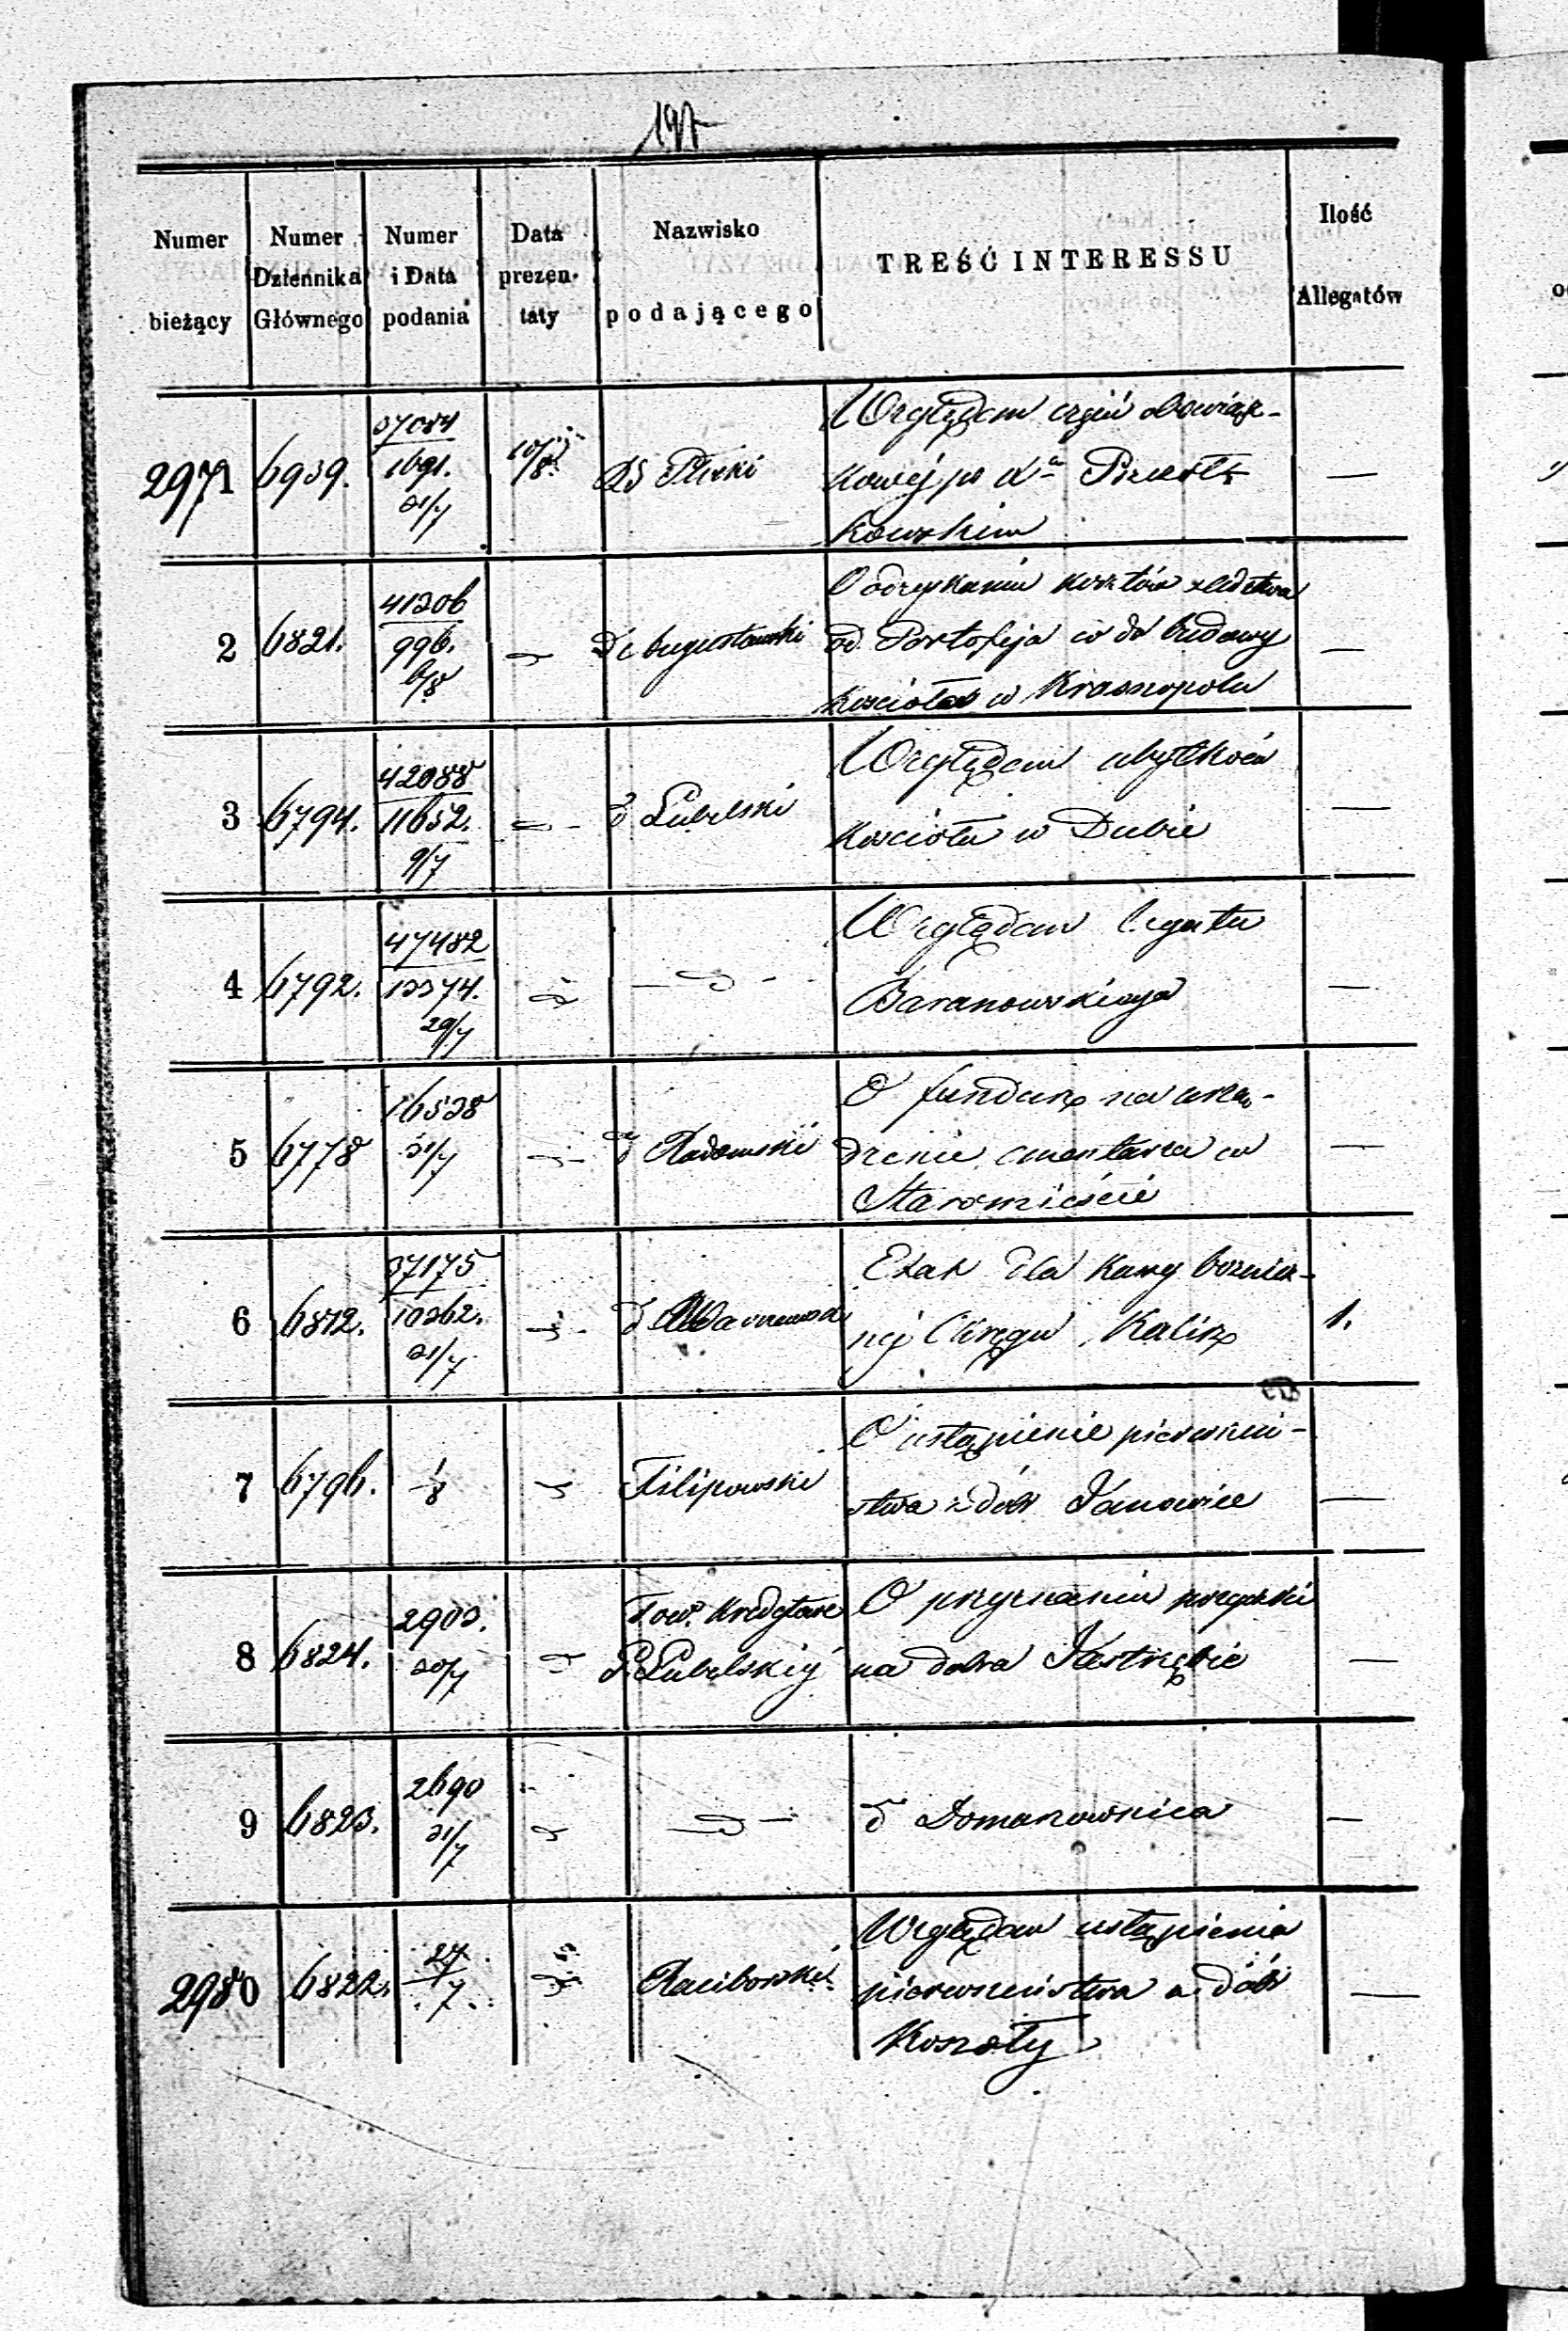 197
Numer bieżący
Numer Dziennika Głównego
Numer i Data podania
Data prezen-taty
Nazwisko podającego
TREŚĆ INTERESSU
Ilość Allegatów
2971 6939. 37084 1691. 31/7 10/8 RG Płocki Względem części obowiąz- —
kowej po Xu
kowskim
2 6821. 41206 996. 6/8 D Augustowski O odzyskaniu kosztów śledztwa —
od Portofeja co do budowy
kościoła w Krasnopolu
3 6794. 42088 11652. 9/7 D d Lubelski Względem —
kościoła w Dubie
4 6792. 47482 13374. 29/7 D — D — Względem legatu —
Baranowskiego
5 6778 16538 31/7 D d Radomski O fundusz na urzą- —
dzenie cmentarza w
Staromieście
6 6812. 37175 10362. 31/7 D d Warszawski Etat dla kassy bożnicz- 1.
nej Okręgu Kalisz
7 6796. 1/8 D Filipowski O ustąpienie pierwszeń- —
stwa z dóbr Janowice
8 6824. 2903. 30/7 D Tow. Kredytowe O przyznaniu pożyczki —
G. Lubelskiej na dobra Jastrzębie
9 6823. 2690 31/7 D — D — d Domanownica —
2980 6822. 24/7 D Raciborski Względem ustąpienia —
pierwszeństwa z dóbr
Koszoły